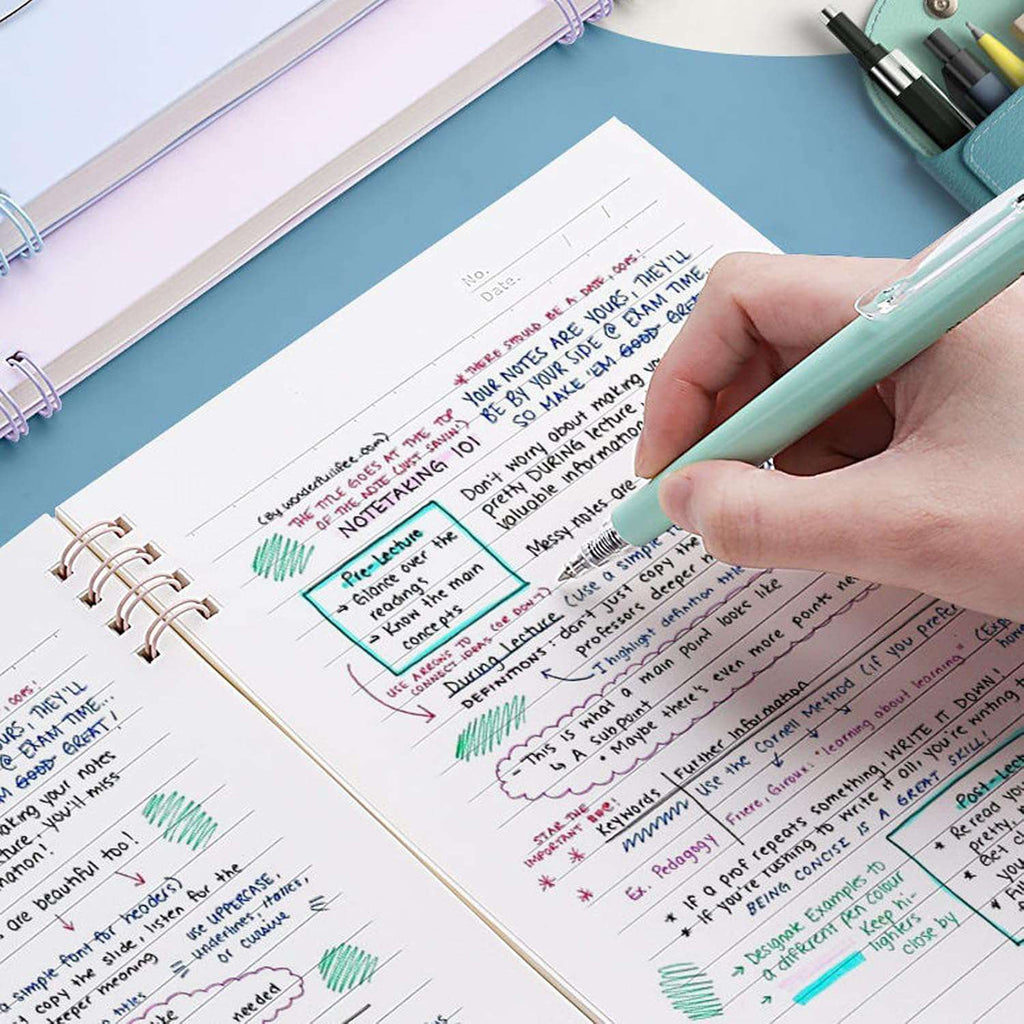 No.
Date.
* THERE SHOULD BE A DATE, OOPS!
YOUR NOTES ARE YOURS, THEY'LL
BE BY YOUR SIDE @ EXAM TIME..
SO MAKE 'EM GOOD GREAT
(By wonderfulifee.com)
THE TITLE GOES AT THE TOP
OF THE NOTE (JUST SAYIN')
NOTETAKING 101
Don't worry about making
pretty DURING lecture
valuable information
Messy notes are
Pre-Lecture
→ Glance over the
readings
→ Know the main
concepts
USE ARROWS TO
CONNECT IDEAS (OR DON'T)
During Lecture (use a simple
DEFINITIONS: don't just copy the
professors deeper
I highlight definition
- This is what a main point looks like
↳ A subpoint
• Maybe there's even more points
STAR THE
IMPORTANT
Keywords
Further Information
Use the Cornell Method (if you prefer
Ex. Pedagogy
Friere, Giroux: "learning about learning"
* IF a prof repeats something, WRITE IT DOWN!
- if you're rushing to write it all, you're writing
BEING CONCISE IS A GREAT SKILL!
→ Designate Examples to
a different pen colour
→ Keep hi-
lighters
close by
Post-Lect
* Reread you
pretty,
* Get c
you
OOPS!
OURS, THEY'LL
@ EXAM TIME..
GOOD GREAT!
aking your notes
cture, you'll miss
mation!
are beautiful too!
a simple font for headers)
copy the slide, listen for the
deeper meaning
titles
use UPPERCASE,
underlines, italics,
or cursive
like
needed